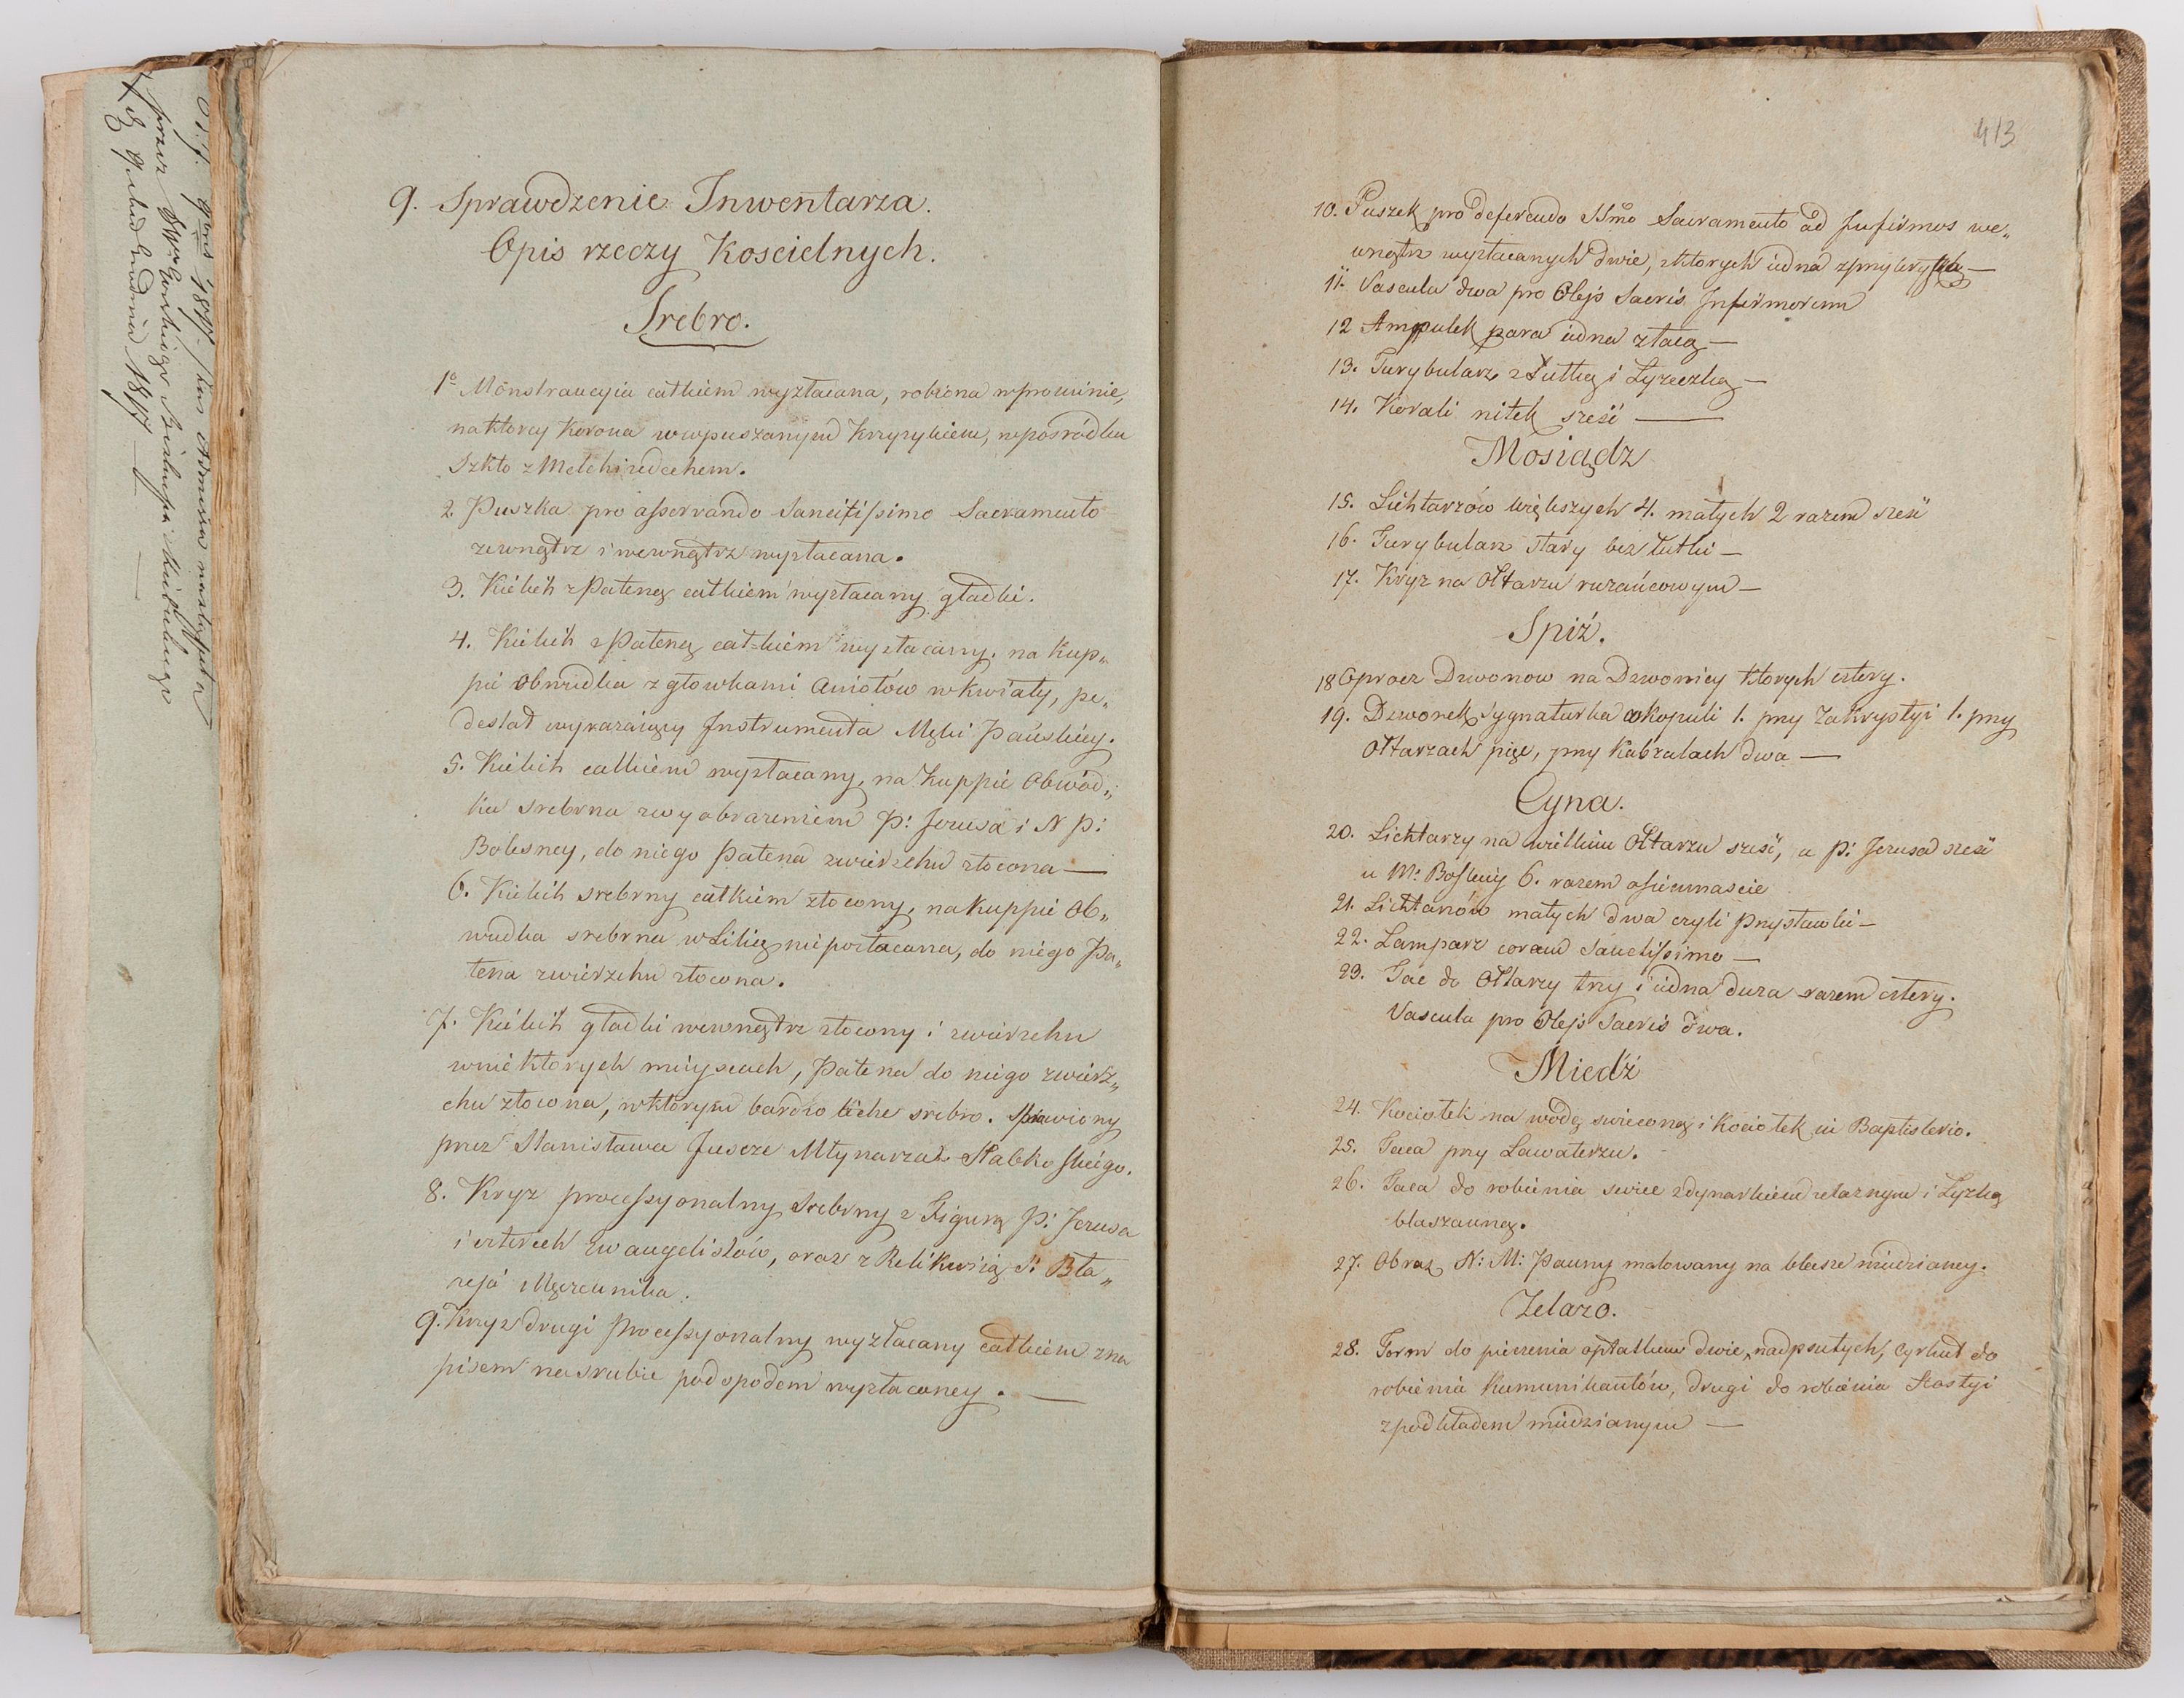 9. Sprawdzenie Inwentarza.
Opis rzeczy Koscielnych.
Srebro.
1o Monstrancyia całkiem wyzłacana, robiona w promienie,
na ktorey Korona w wpuszczanym krzyzykiem, wposródku
Szkło z Melchizedechem.
2. Puszka pro asservando Sanctissimo Sacramento
zewnątrz i wewnątrz wyzłacana.
3. Kielich z Pateną całkiem wyzłacany gładki.
4. Kielich z Pateną całkiem wyzłacany, na Kup„
pie obwudka z głowkami Aniołów w kwiaty, pe„
destał wyrazaiący Instrumenta Męki Pańskiey.
5. Kielich całkiem wyzłacany, na Kuppie Obwód„
ka srebrna z wyobrazeniem P: Jezusa i N P:
Bolesney, do niego Patena zwierzchu złocona —
6. Kielich srebrny całkiem złocony, na Kuppie Ob„
wudka srebrna w Lilią niepozłacana, do niego Pa„
tena zwierzchu złocona.
7. Kielich gładki wewnątrz złocony i zwierzchu
w niektorych mieyscach, Patena do niego zwierz„
chu złocona, w ktorym bardzo liche srebro. Sprawiony
przez Stanisława Młynarza
8. Kryz processyonalny Srebrny z Figurą P: Jezusa
i czterech Ewangelistów, oraz z Relikwiią S: Bła„
zeja Męczennika.
9. Kryz drugi Processyonalny wyzłacany całkiem z na
pisem na srubie pod spodem wyzłaconey. —
413
10. Puszek pro deferendo SSmo Sacramento ad Infirmos we„
wnątrz wyzłacanych dwie, z ktorych iedna z przykrywką —
11. Vascula dwa pro Olejs Sacris Infirmorum
12 Ampulek para iedna złacą —
13. Turybularz z Łutką i Łyzeczką —
14. Korali nitek sześć —
Mosiądz
15. Lichtarzów większych 4. małych 2 razem sześć
16. Turybularz stary bez Łutki —
17. Kryz na Ołtarzu rużańcowym —
Spiż.
18 Oprocz Dzwonow na Dzwonicy ktorych cztery.
19. Dzwonek Sygnaturka w kopuli 1. przy Zakrystyi 1. przy
Ołtarzach pięc, przy Kabzalach dwa —
Cyna.
20. Lichtarzy na wielkim Ołtarzu sześć, u P: Jezusa sześć
u M: Boskiey 6. razem osiemnascie
21. Lichtarzów małych dwa czyli Przystawki —
22. Lamparz coram Sanctissimo —
23. Tac do Ołtarzy trzy i iedna duza razem cztery.
Vascula pro Olejs Sacris dwa.
Miedź
24. Kociołek na wodę swięconą i Kociołek in Baptisterio.
25. Taca przy Lawaterzu.
26. Taca do robienia swiec z dynarkiem zelaznym i Łyzką
blaszanną.
27. Obraz N: M: Panny malowany na blasze miedzianey.
Zelazo.
28. Form do pieczenia opłatkow dwie, nadpsutych, Cyrkuł do
robienia Kumunikantów, drugi do robienia Hostyi
z podkładem miedzianym —